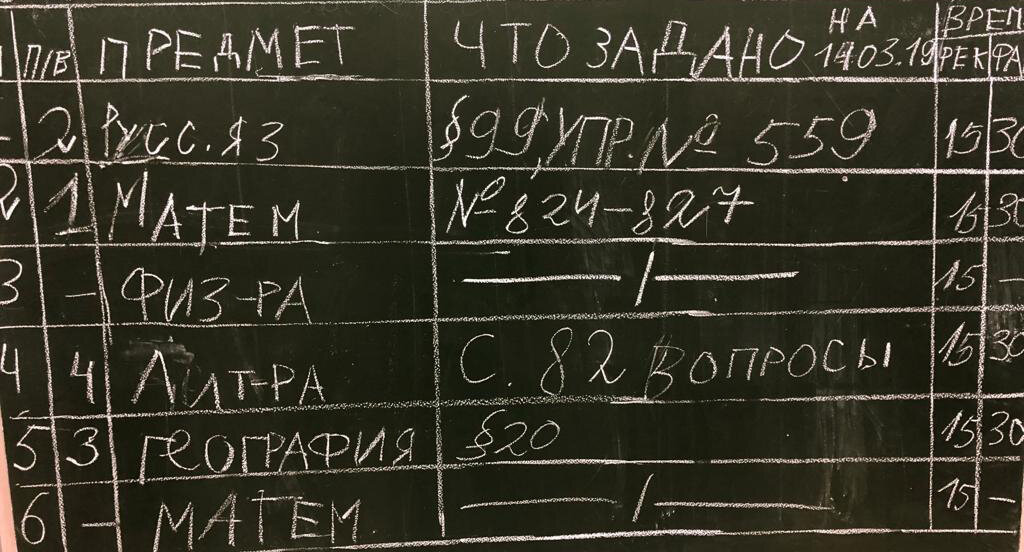 П/В ПРЕДМЕТ ЧТО ЗАДАНО НА 14.03.19 ВРЕМ
РЕК ФА
2 РУСС. ЯЗ §99, УПР. № 559 15 30
2 1 МАТЕМ № 824-827 15 30
3 – ФИЗ-РА —/— 15 –
4 4 ЛИТ-РА С. 82 ВОПРОСЫ 15 30
5 3 ГЕОГРАФИЯ §20 15 30
6 – МАТЕМ. —/— 15 –